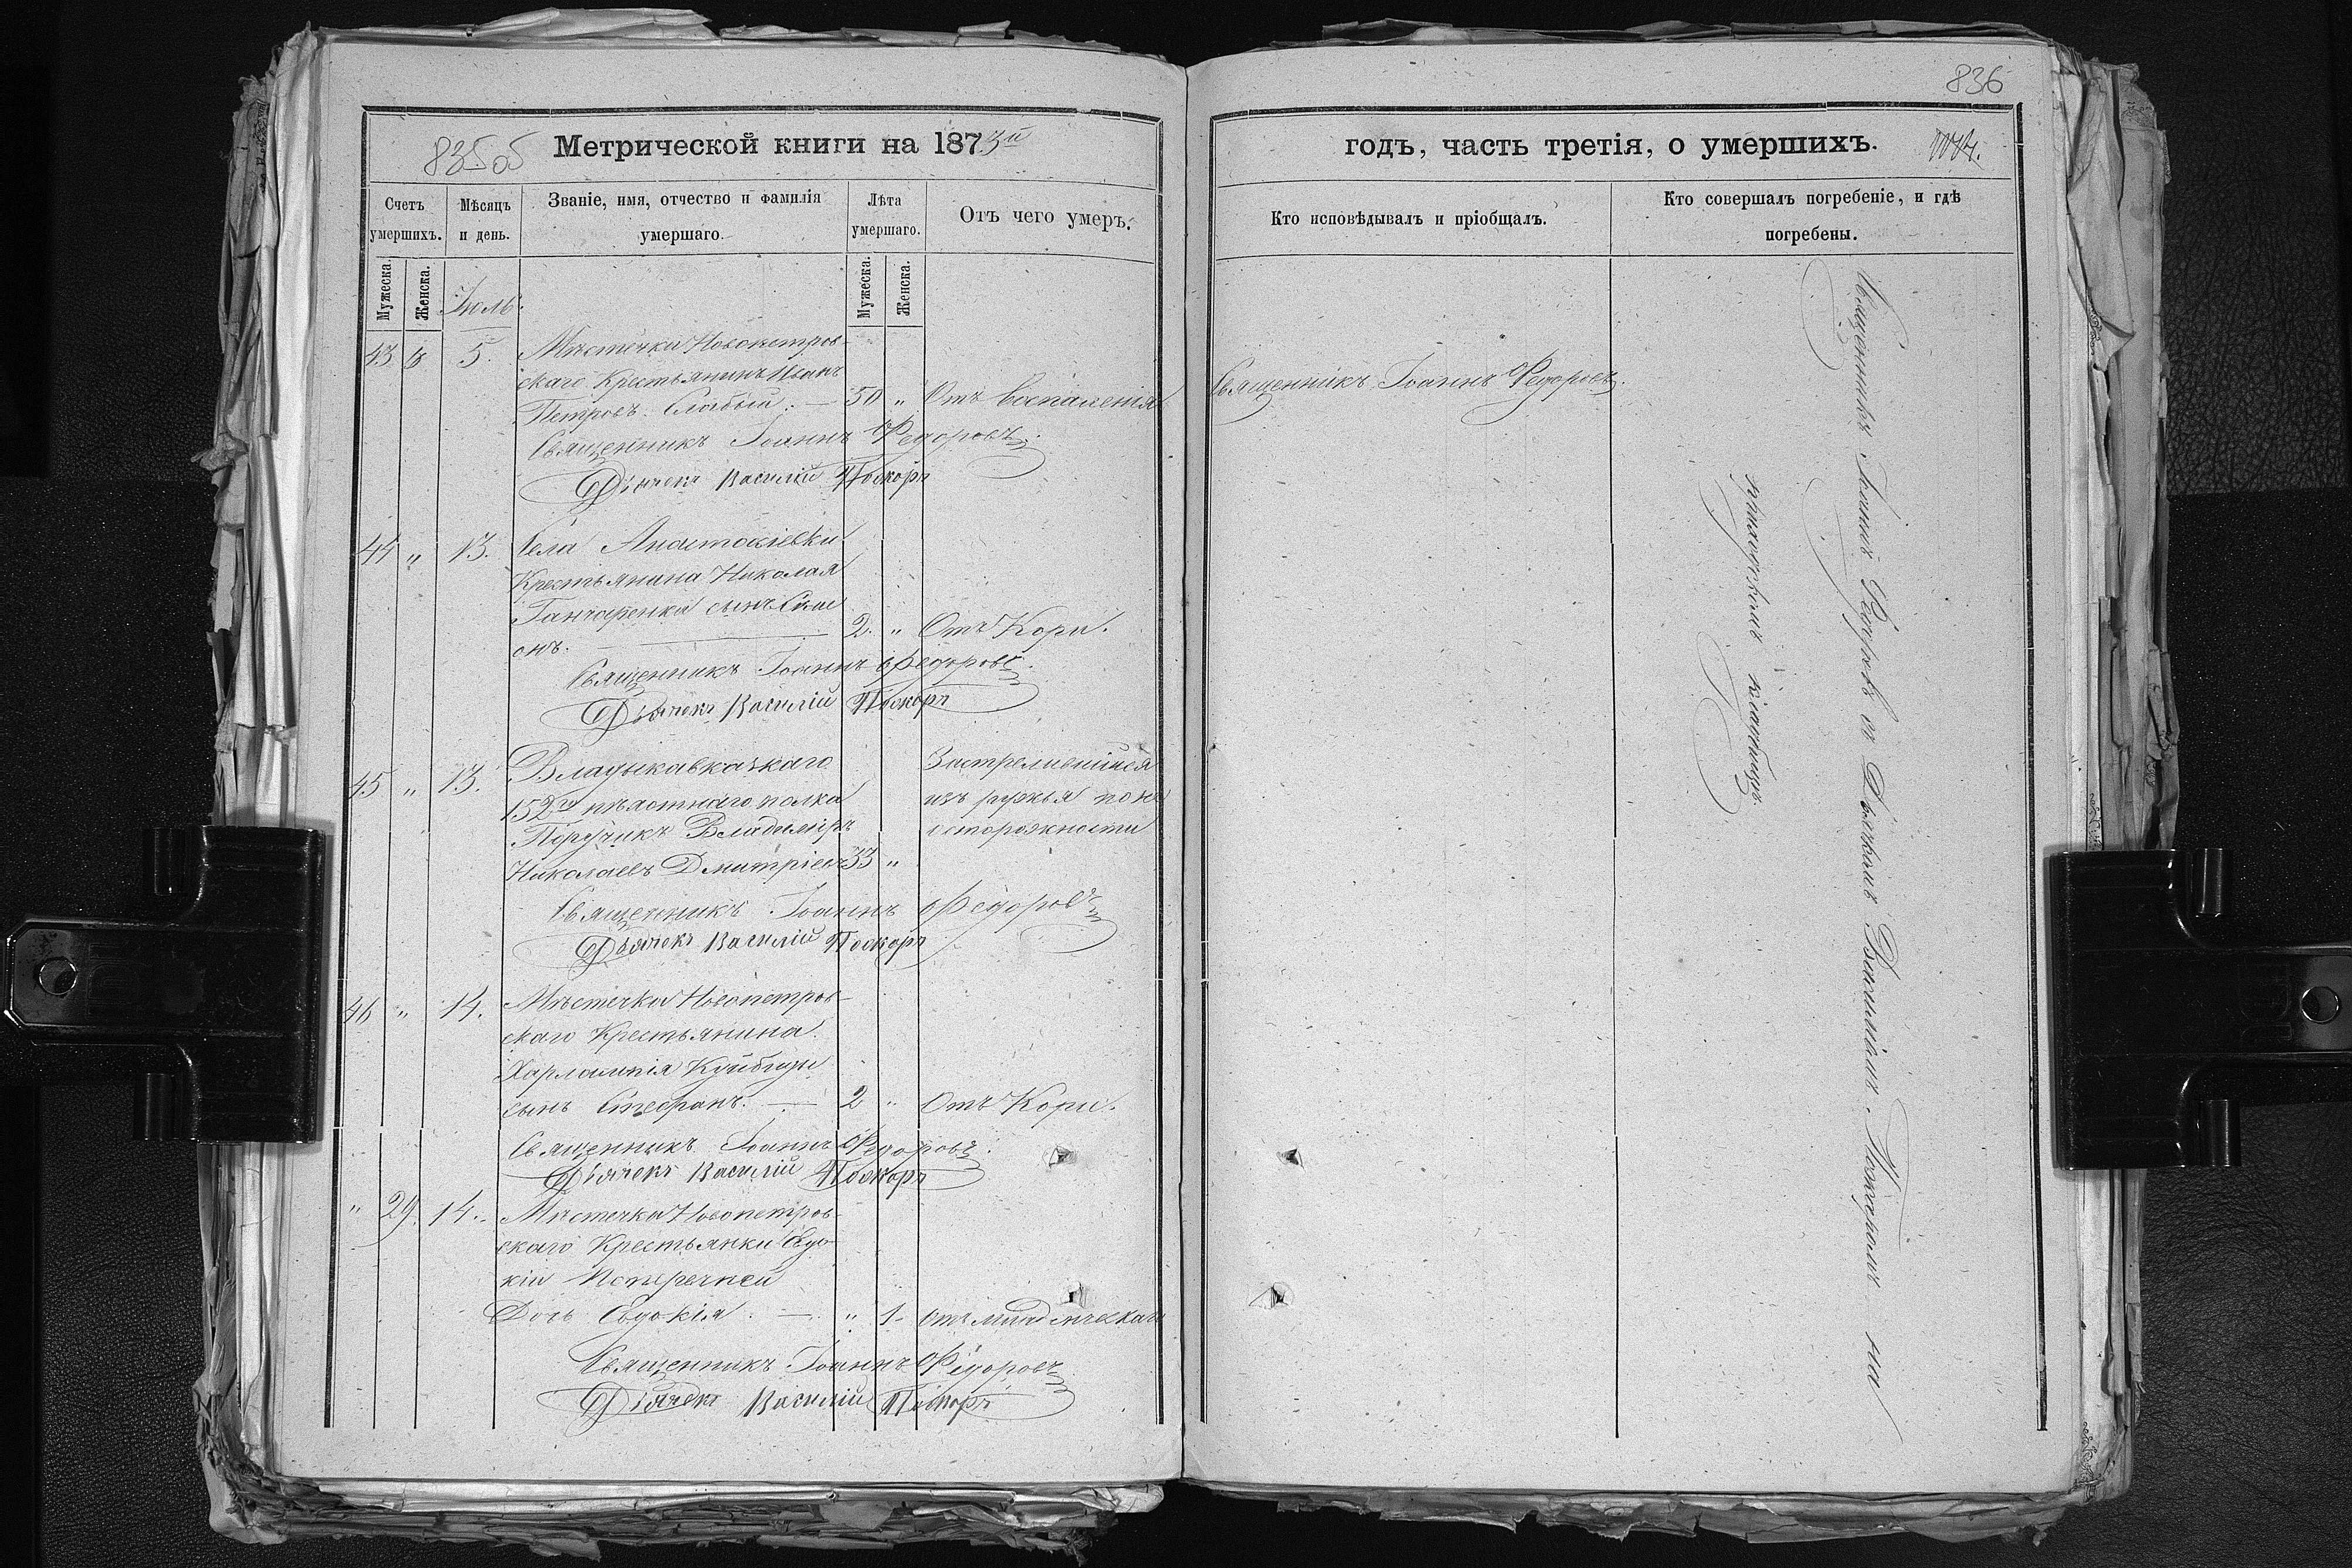 835об
Метрической книги на 1873й
Счетъ умершихъ.
Мѣсяцъ и день.
Званіе, имя, отчество и фамилія умершаго.
Лѣта умершаго.
Отъ чего умеръ.
Мужеска.
Женска.
Мужеска.
Женска.
Іюль.
43 " 5. Мѣстечка Новопетров-
скаго Крестьянинъ Иванъ
Петровъ Слабый. — 50 " Отъ воспаленія
Священникъ Іоаннъ Ѳедоровъ.
Дьячекъ Василій Поскоръ
44 " 13. Села Анастасіевки
Крестьянина Николая
Ганчаренка сынъ Сим
онъ. — 2. " Отъ Кори.
Священникъ Іоаннъ Ѳедоровъ.
Дьячекъ Василій Поскоръ
45 " 13. Владыкавказкаго Застрелившійся
152го пѣхотнаго полка изъ ружья по не
Поручикъ Владиміръ осторожности
Николаевъ Дмитріевъ 33 "
Священникъ Іоаннъ Ѳедоровъ
Дьячекъ Василій Поскоръ
46 " 14. Мѣстечка Новопетров-
скаго Крестьянина
Харлампія
сынъ Стефанъ. — 2 " Отъ Кори.
Священникъ Іоаннъ Ѳедоровъ.
Дьячекъ Василій Поскоръ
" 29. 14. Мѣстечка Новопетров-
скаго Крестьянки Евдо-
кіи
Дочь Евдокія. — " 1 отъ младенческаго
Священникъ Іоаннъ Ѳедоровъ
Дьячекъ Василій Поскоръ
836
годъ, часть третія, о умершихъ.
Кто исповѣдывалъ и пріобщалъ.
Кто совершалъ погребеніе, и гдѣ погребены.
Священникъ Іоаннъ Ѳедоровъ.
Священникъ Іоаннъ Ѳедоровъ съ Дьячкомъ Василіемъ Поскоромъ на
приходскомъ кладбищѣ.